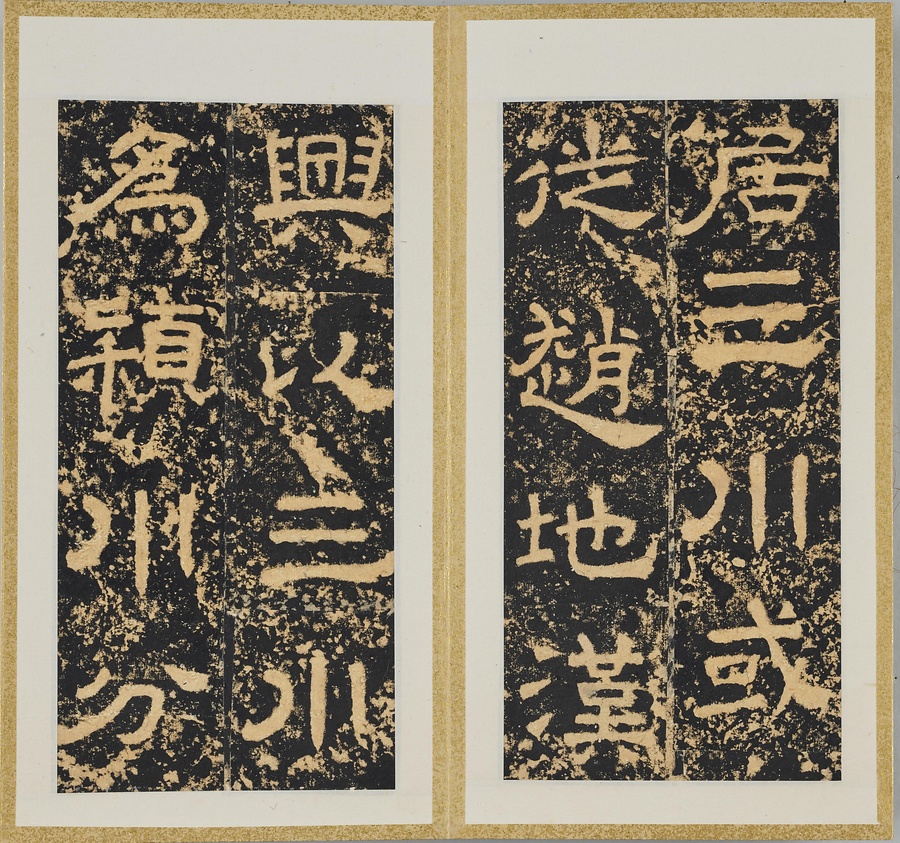 居三川或
徙趙地漢
興以三川
爲穎川分